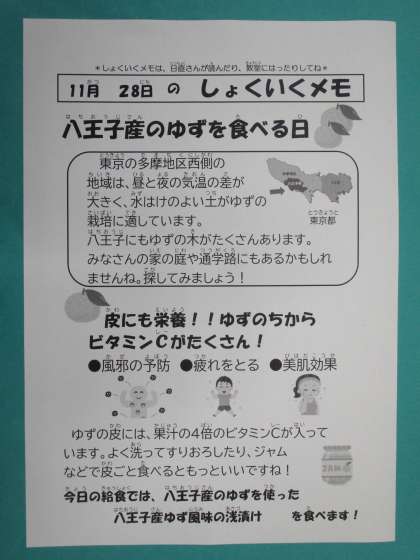 ＊しょくいくメモは、日直さんが読んだり、教室にはったりしてね＊
11月 28日 の しょくいくメモ
八王子産のゆずを食べる日
東京の多摩地区西側の
地域は、昼と夜の気温の差が
大きく、水はけのよい土がゆずの
栽培に適しています。
八王子にもゆずの木がたくさんあります。
みなさんの家の庭や通学路にもあるかもしれ
ませんね。探してみましょう！
東京都
皮にも栄養！！ゆずのちから
ビタミンCがたくさん！
●風邪の予防 ●疲れをとる ●美肌効果
ゆずの皮には、果汁の4倍のビタミンCが入って
います。よく洗ってすりおろしたり、ジャム
などで皮ごと食べるともっといいですね！
今日の給食では、八王子産のゆずを使った
八王子産ゆず風味の浅漬け を食べます！